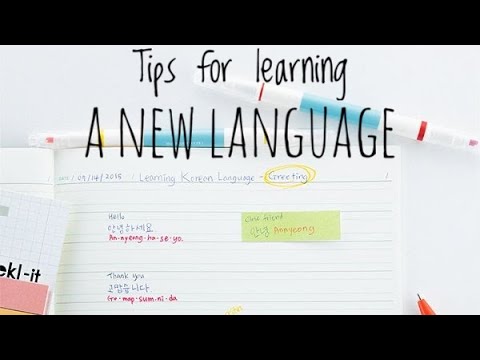 Tips for learning
A NEW LANGUAGE
Learning Korean Language - Greeting
Hello
안녕하세요
An·nyeong·ha·se·yo.
Close friend
안녕 Annyeong
ekl-it
Thank you
고맙습니다
Go·map·sum·ni·da